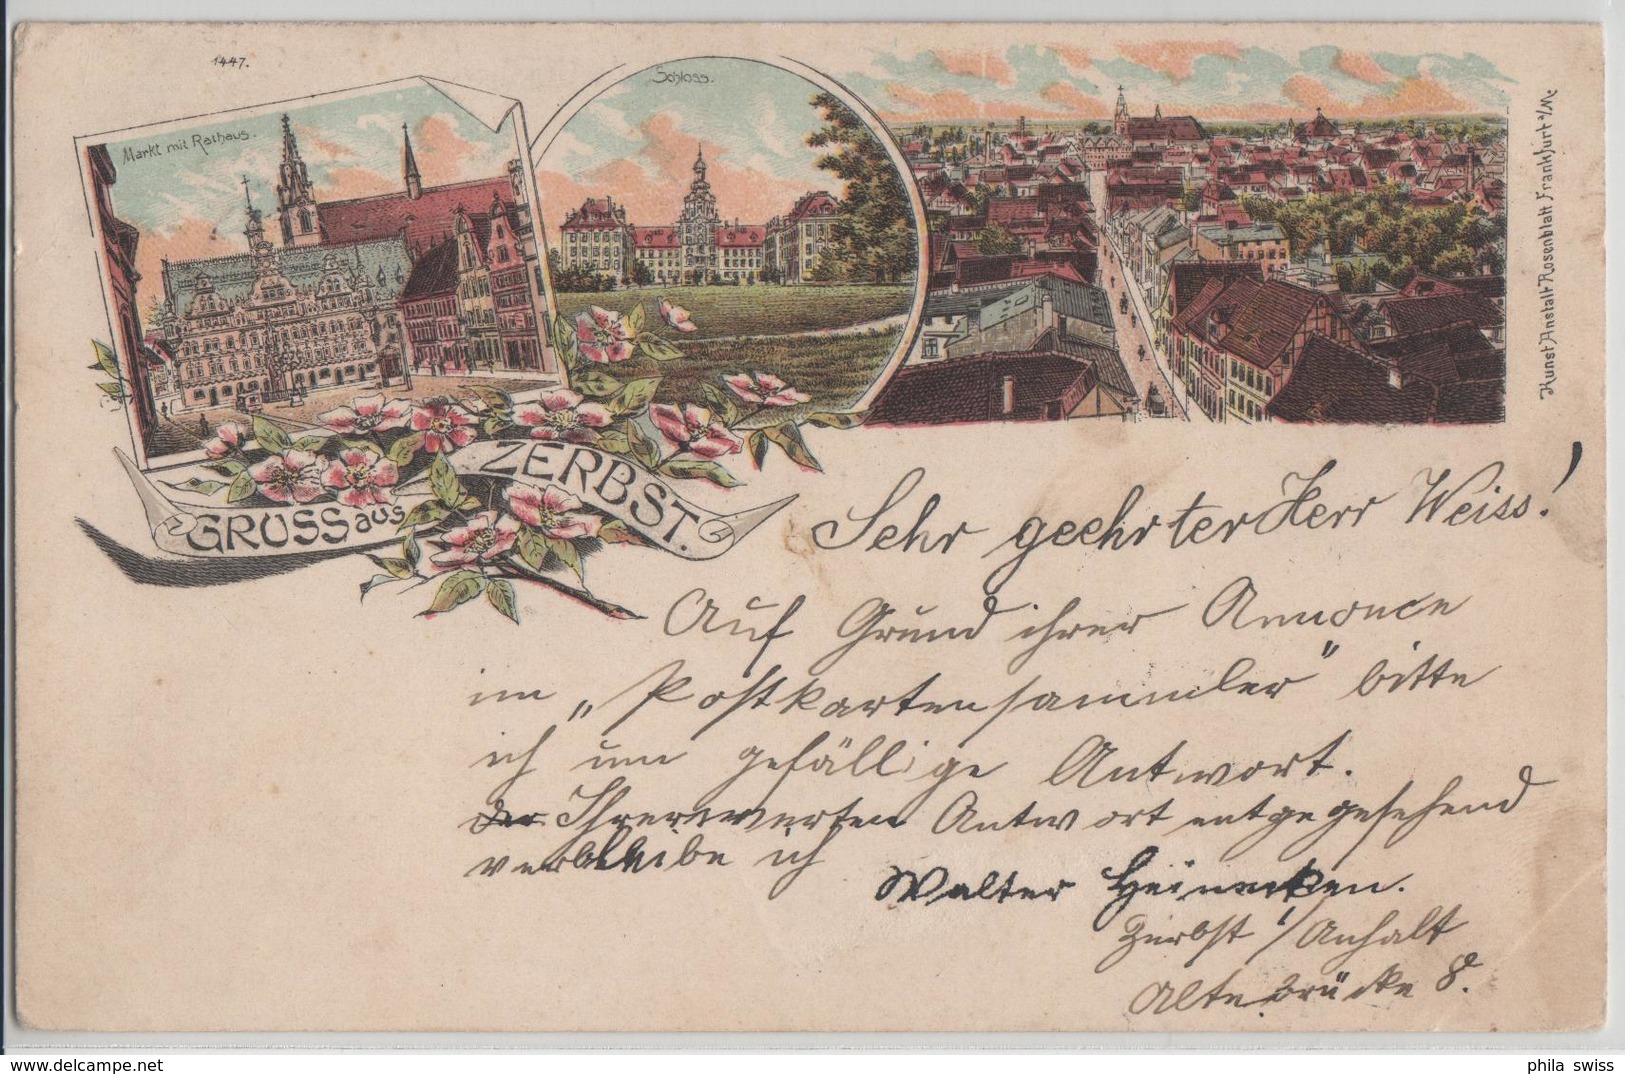 1447.
Markt mit Rathaus.
Schloss.
Kunst Anstalt Rosenblatt Frankfurt a/M.
GRUSS aus
ZERBST.
Sehr geehrter Herr Weiss!
Auf Grund ihrer Annonce
im „Postkartensammler" bitte
ich um gefällige Antwort.
Ihrer werten Antwort entgegesehend
verbleibe ich
Walter Heinecken.
Zerbst / Anhalt
Alte brücke 8.
delcampe.net
phila_swiss